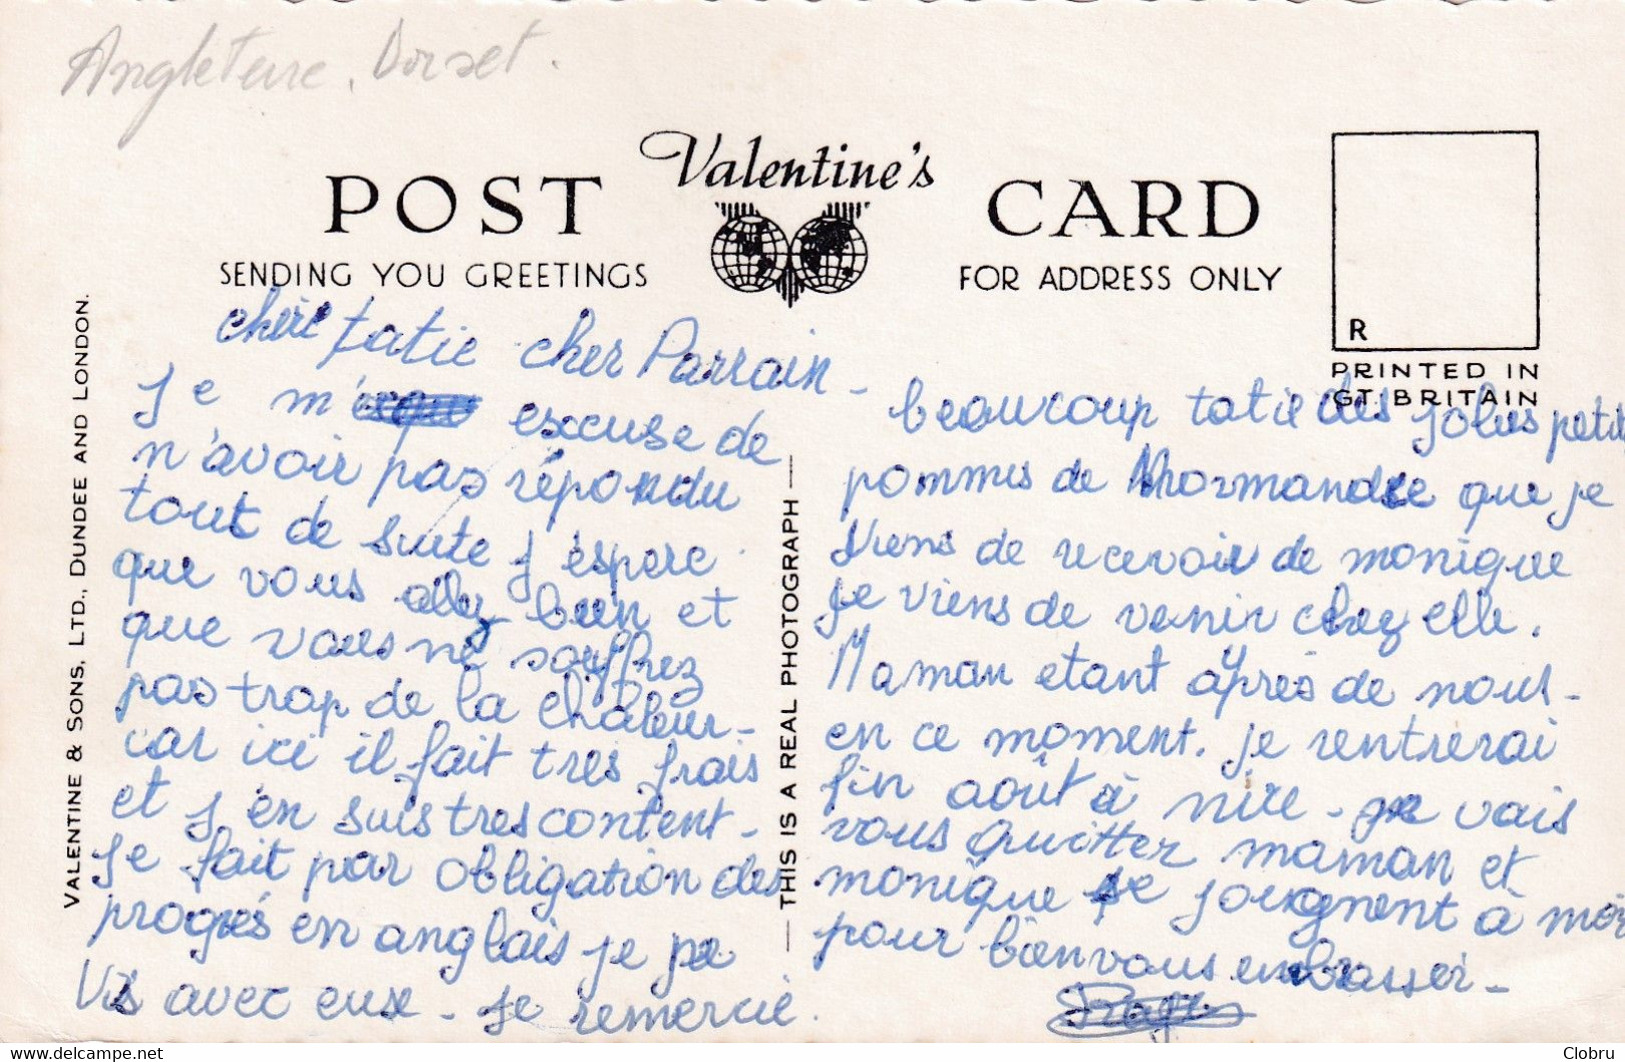 Angleterre. Dorset.
Valentine's
POST CARD
SENDING YOU GREETINGS
FOR ADDRESS ONLY
R
PRINTED IN
GT. BRITAIN
VALENTINE & SONS, LTD., DUNDEE AND LONDON.
THIS IS A REAL PHOTOGRAPH
chère tatie cher Parrain -
Je m' excuse de
n'avoir pas répondu
tout de suite j'éspère
que vous allez bien et
que vous ne souffrez
pas trop de la chaleur -
car ici il fait très frais
et j'en suis tres content -
Je fait par obligation des
progrés en anglais je
Vis avec eux - Je remercie
beaucoup tatie des jolies petit
pommes de Normandie que je
viens de recevoir de monique
je viens de venir chez elle.
Maman etant après de nous -
en ce moment. je rentrerai
fin août à nice - je vais
vous quitter maman et
monique se joignent à moi
pour bien vous embrasser -
Clobru